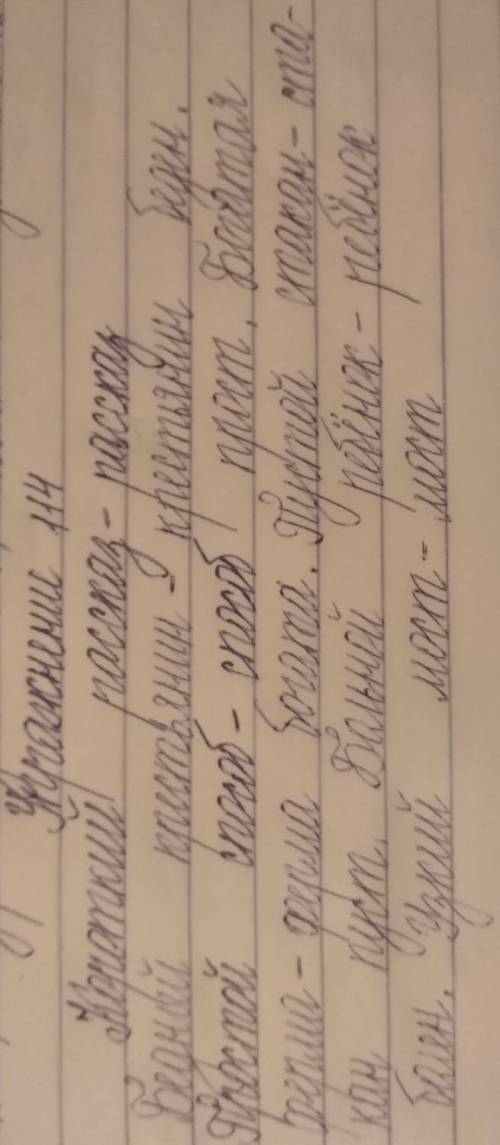 Упражнение 114
Короткий рассказ - рассказ
Бедный крестьянин - крестьянин беден.
Простой способ - способ прост. Богатая
ферма - ферма богата. Пустой стакан - ста-
кан пуст. Больной ребёнок - ребёнок
болен. Узкий мост - мост